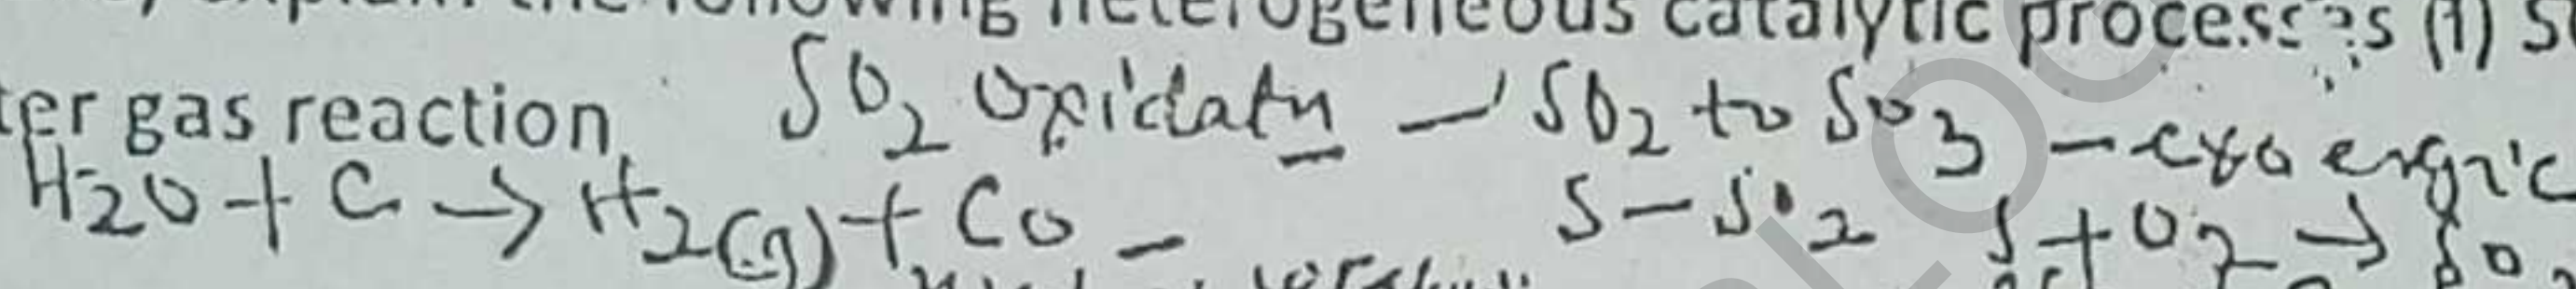 explain the following heterogeneous catalytic processes (1) S
ter gas reaction, SO2 oxidatn - SO2 to SO3 - exo ergic
H2O + C → H2(g) + CO - S - SO2 S + O2 → SO2